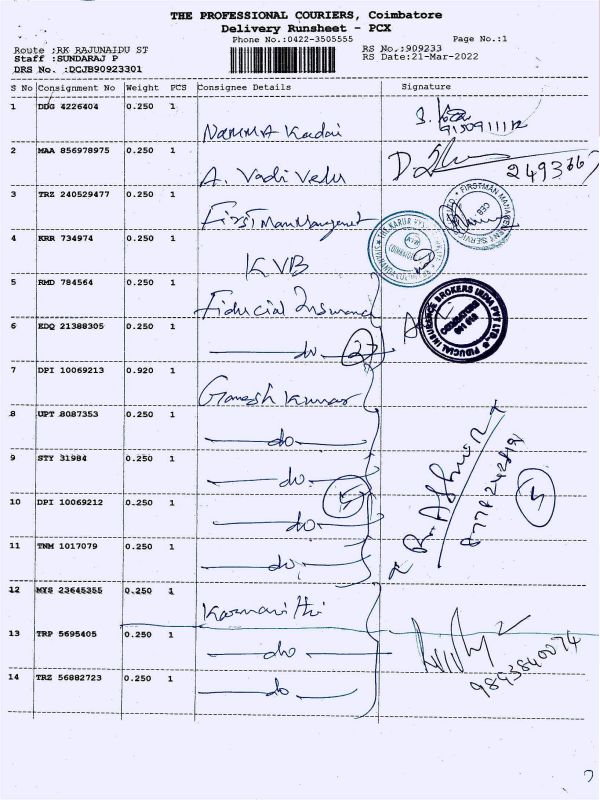 THE PROFESSIONAL COURIERS, Coimbatore
Delivery Runsheet - PCX
Phone No.:0422-3505555 Page No.:1
Route :RK RAJUNAIDU ST RS No.:909233
Staff :SUNDARAJ P RS Date:21-Mar-2022
DRS No. :DCJB90923301
S No Consignment No Weight PCS Consignee Details Signature
1 DDG 4226404 0.250 1
NAMMA Kadai
2 MAA 856978975 0.250 1
A. Vadi Velu 249366
3 TRZ 240529477 0.250 1
First Man Management
4 KRR 734974 0.250 1
KVB
5 RMD 784564 0.250 1
Fiducial Insurance
FIDUCIAL INSURANCE BROKERS INDIA PVT LTD.
6 EDQ 21388305 0.250 1
do
7 DPI 10069213 0.920 1
Ganesh Kumar
8 UPT 8087353 0.250 1
do
9 STY 31984 0.250 1
do
5 5
10 DPI 10069212 0.250 1
do
11 TNM 1017079 0.250 1
do
12 MYS 23645355 0.250 1
13 TRP 5695405 0.250 1
do
9843840074
14 TRZ 56882723 0.250 1
do